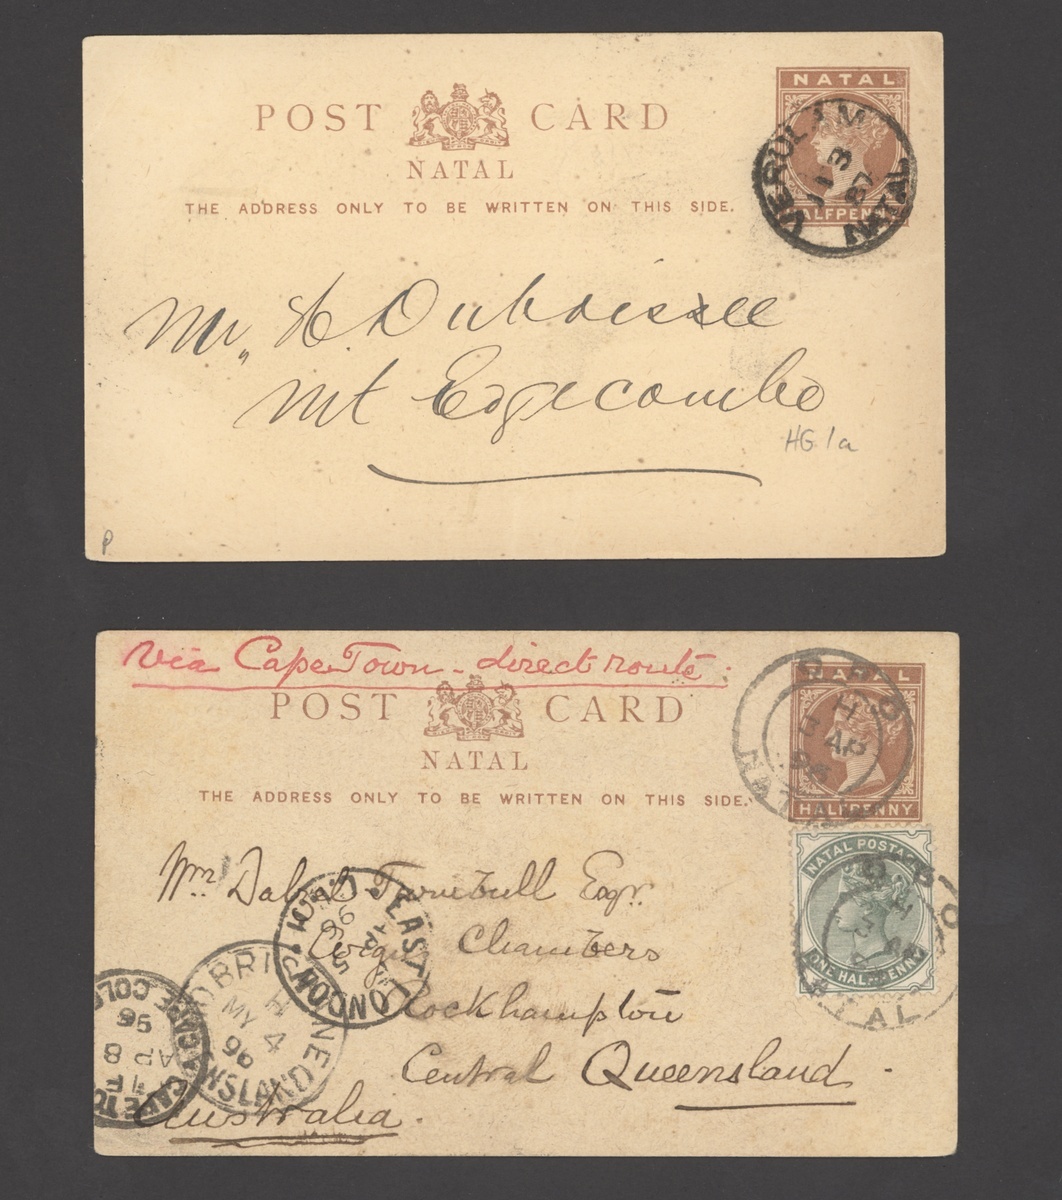 POST CARD
NATAL
THE ADDRESS ONLY TO BE WRITTEN ON THIS SIDE.
NATAL
HALFPENNY
VERULAM
NATAL
Mr. H Duboisee
Mt Edgecombe
HG 1a
P
via Cape Town - direct route.
POST CARD
NATAL
THE ADDRESS ONLY TO BE WRITTEN ON THIS SIDE.
NATAL
HALFPENNY
NATAL
AP
NATAL POSTAGE
ONE HALFPENNY
NATAL
Wm. Turnbull Esqr.
Chambers
Rockhampton
Central Queensland.
Australia.
EAST LONDON
96
MY 4
96
CAPE COL
1F
AP 8
96